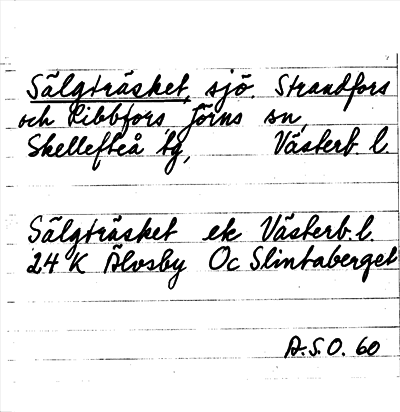 Sälgträsket, sjö. Strandfors
och Ribbfors, Jörns sn,
Skellefteå tg, Västerb. l.
Sälgträsket ek Västerb. l.
24 K Älvsby Oc Slintaberget
A.S.O. 60